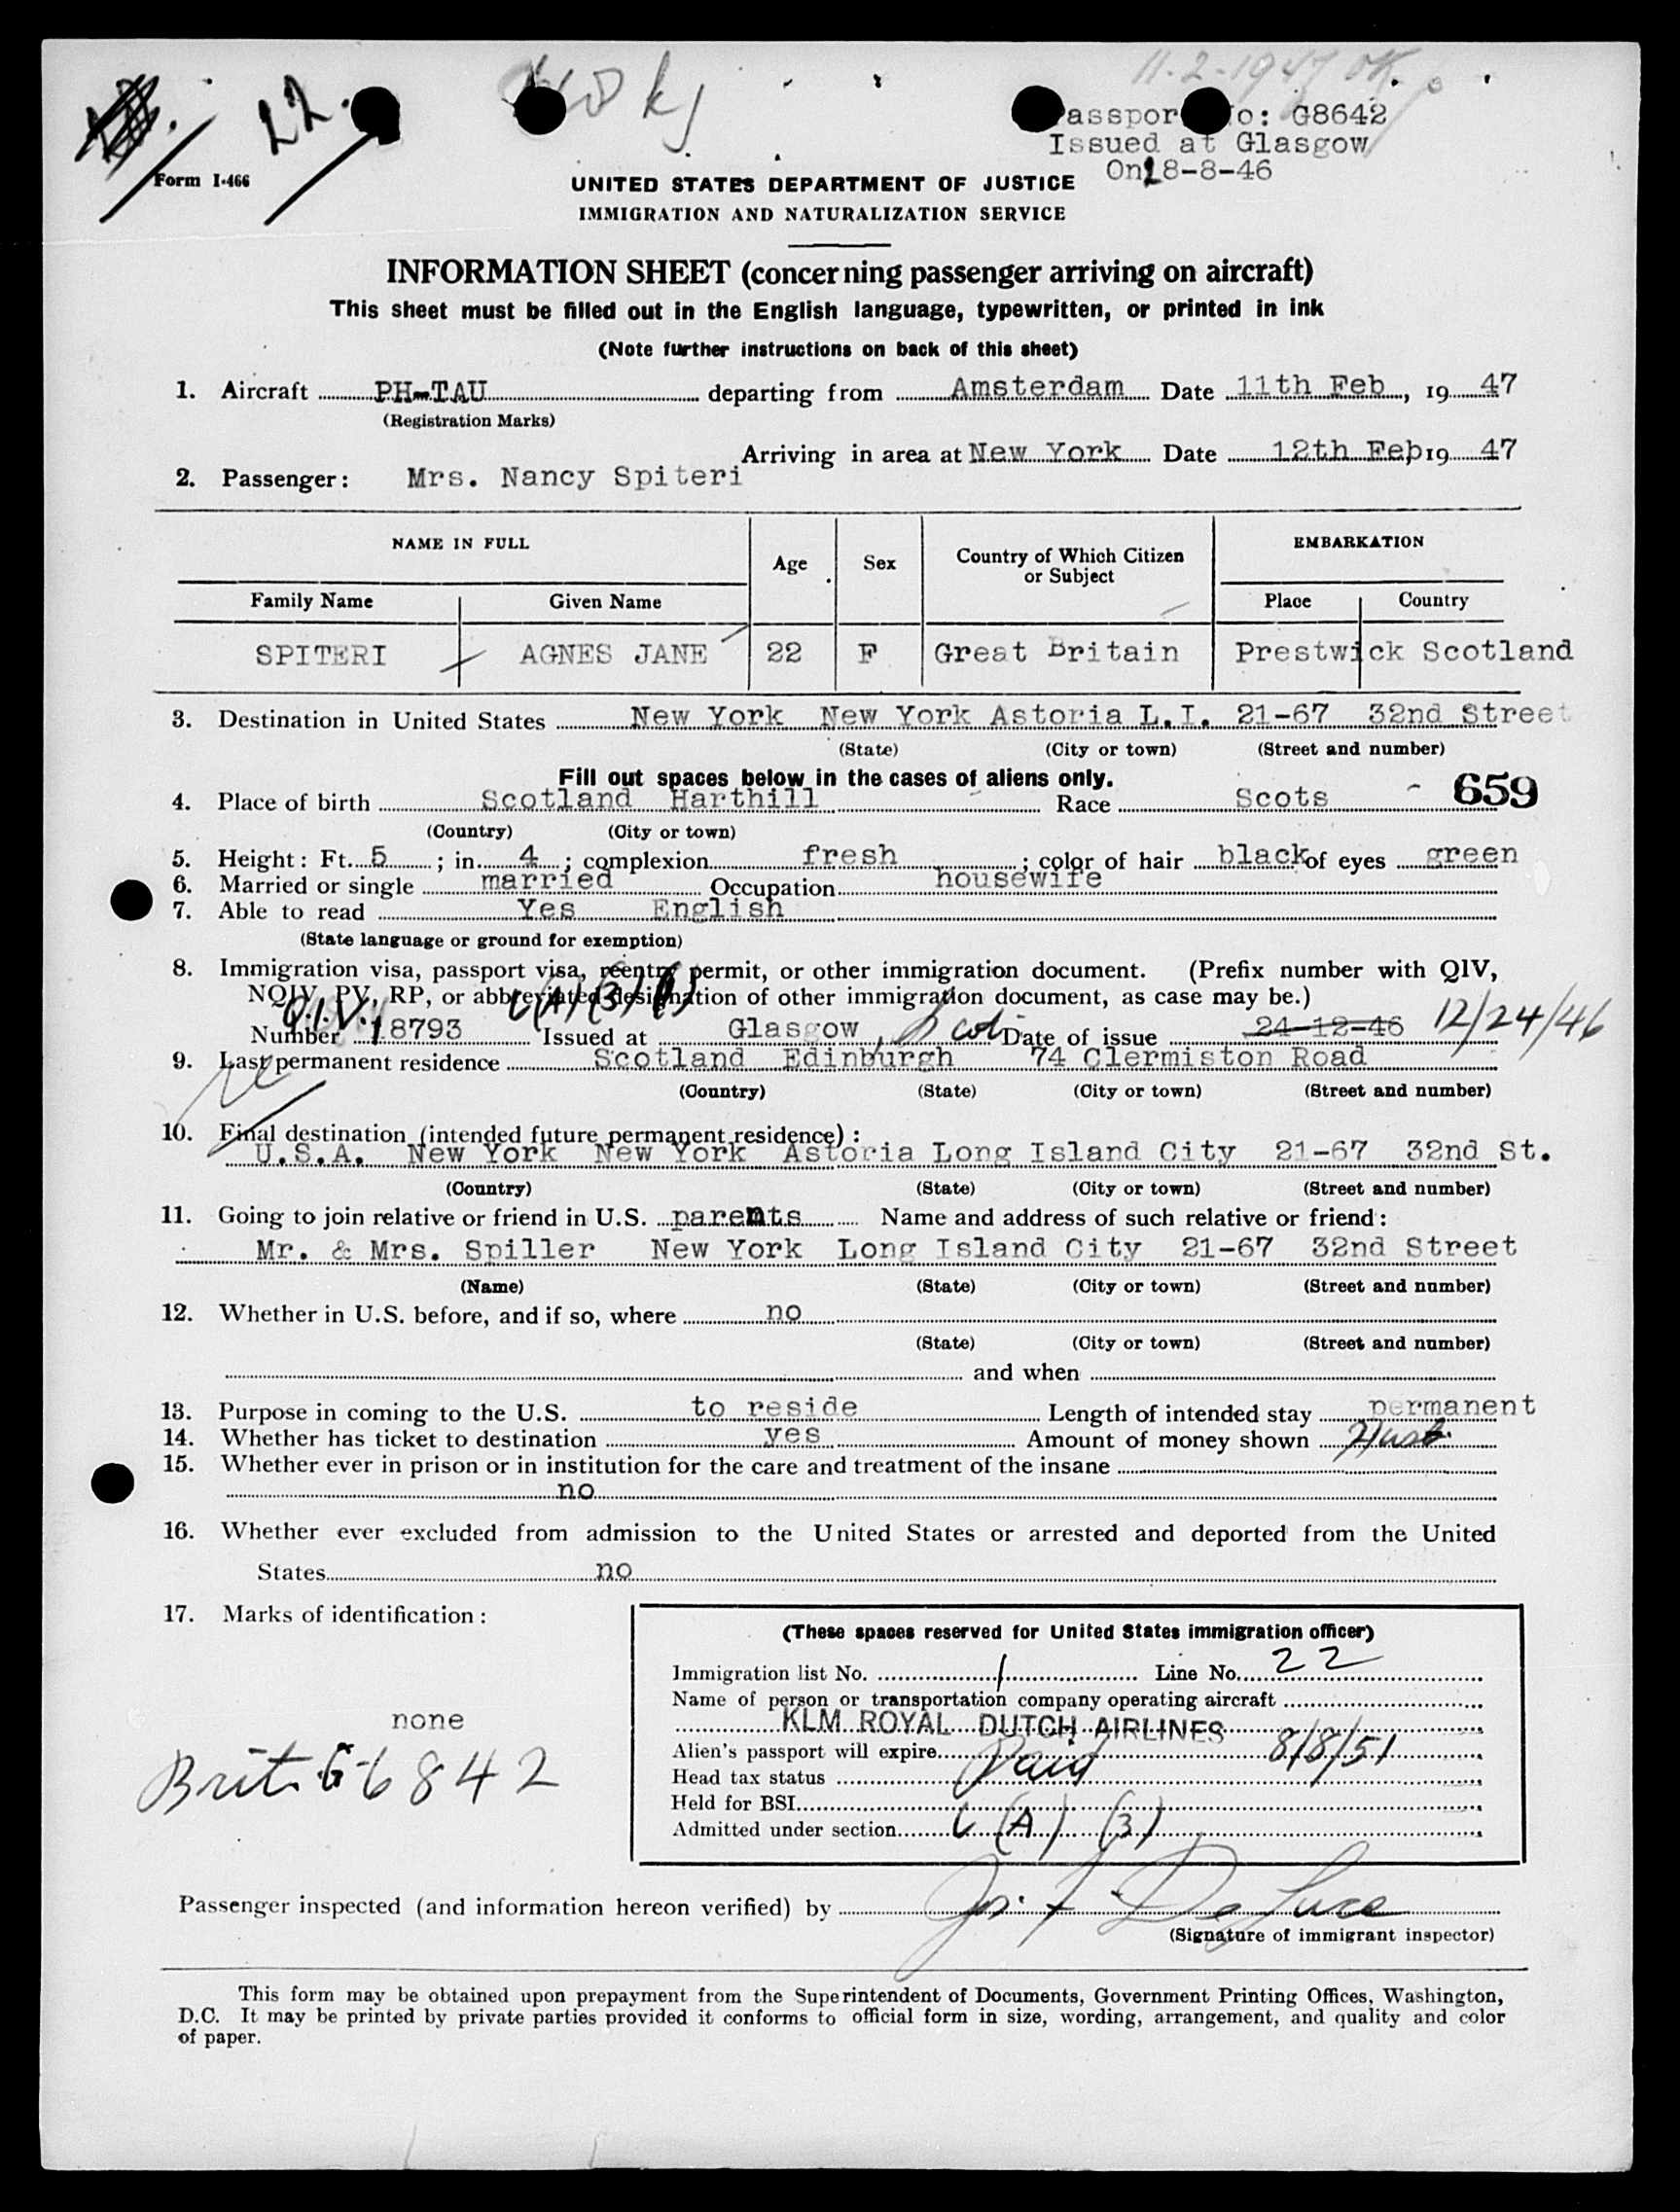 22.
kg
11-2-1947 OK.
Passport No: G8642
Issued at Glasgow
On 8-8-46
Form I-466
UNITED STATES DEPARTMENT OF JUSTICE
IMMIGRATION AND NATURALIZATION SERVICE
INFORMATION SHEET (concerning passenger arriving on aircraft)
This sheet must be filled out in the English language, typewritten, or printed in ink
(Note further instructions on back of this sheet)
1. Aircraft PH-TAU departing from Amsterdam Date 11th Feb, 1947
(Registration Marks)
Arriving in area at New York Date 12th Feb 1947
2. Passenger: Mrs. Nancy Spiteri
NAME IN FULL Age Sex Country of Which Citizen or Subject EMBARKATION
Family Name Given Name Place Country
SPITERI AGNES JANE 22 F Great Britain Prestwick Scotland
3. Destination in United States New York New York Astoria L.I. 21-67 32nd Street
(State) (City or town) (Street and number)
Fill out spaces below in the cases of aliens only.
659
4. Place of birth Scotland Harthill Race Scots
(Country) (City or town)
5. Height: Ft. 5; in. 4; complexion fresh; color of hair black of eyes green
6. Married or single married Occupation housewife
7. Able to read Yes English
(State language or ground for exemption)
8. Immigration visa, passport visa, reentry permit, or other immigration document. (Prefix number with QIV,
NQIV, PV, RP, or abbreviated designation of other immigration document, as case may be.)
Q.I.V. (A) (3)
Number 18793 Issued at Glasgow, Scot Date of issue 24-12-46 12/24/46
9. Last permanent residence Scotland Edinburgh 74 Clermiston Road
(Country) (State) (City or town) (Street and number)
10. Final destination (intended future permanent residence):
U.S.A. New York New York Astoria Long Island City 21-67 32nd St.
(Country) (State) (City or town) (Street and number)
11. Going to join relative or friend in U.S. parents Name and address of such relative or friend:
Mr. & Mrs. Spiller New York Long Island City 21-67 32nd Street
(Name) (State) (City or town) (Street and number)
12. Whether in U.S. before, and if so, where no
(State) (City or town) (Street and number)
and when
13. Purpose in coming to the U.S. to reside Length of intended stay permanent
14. Whether has ticket to destination yes Amount of money shown
15. Whether ever in prison or in institution for the care and treatment of the insane
no
16. Whether ever excluded from admission to the United States or arrested and deported from the United
States no
17. Marks of identification:
none
Brit. G-6842
(These spaces reserved for United States immigration officer)
Immigration list No. 1 Line No. 22
Name of person or transportation company operating aircraft
KLM ROYAL DUTCH AIRLINES
Alien's passport will expire 8/8/51
Head tax status Paid
Held for BSI
Admitted under section (A) (3)
Passenger inspected (and information hereon verified) by Jos. F. De Luca
(Signature of immigrant inspector)
This form may be obtained upon prepayment from the Superintendent of Documents, Government Printing Offices, Washington,
D.C. It may be printed by private parties provided it conforms to official form in size, wording, arrangement, and quality and color
of paper.